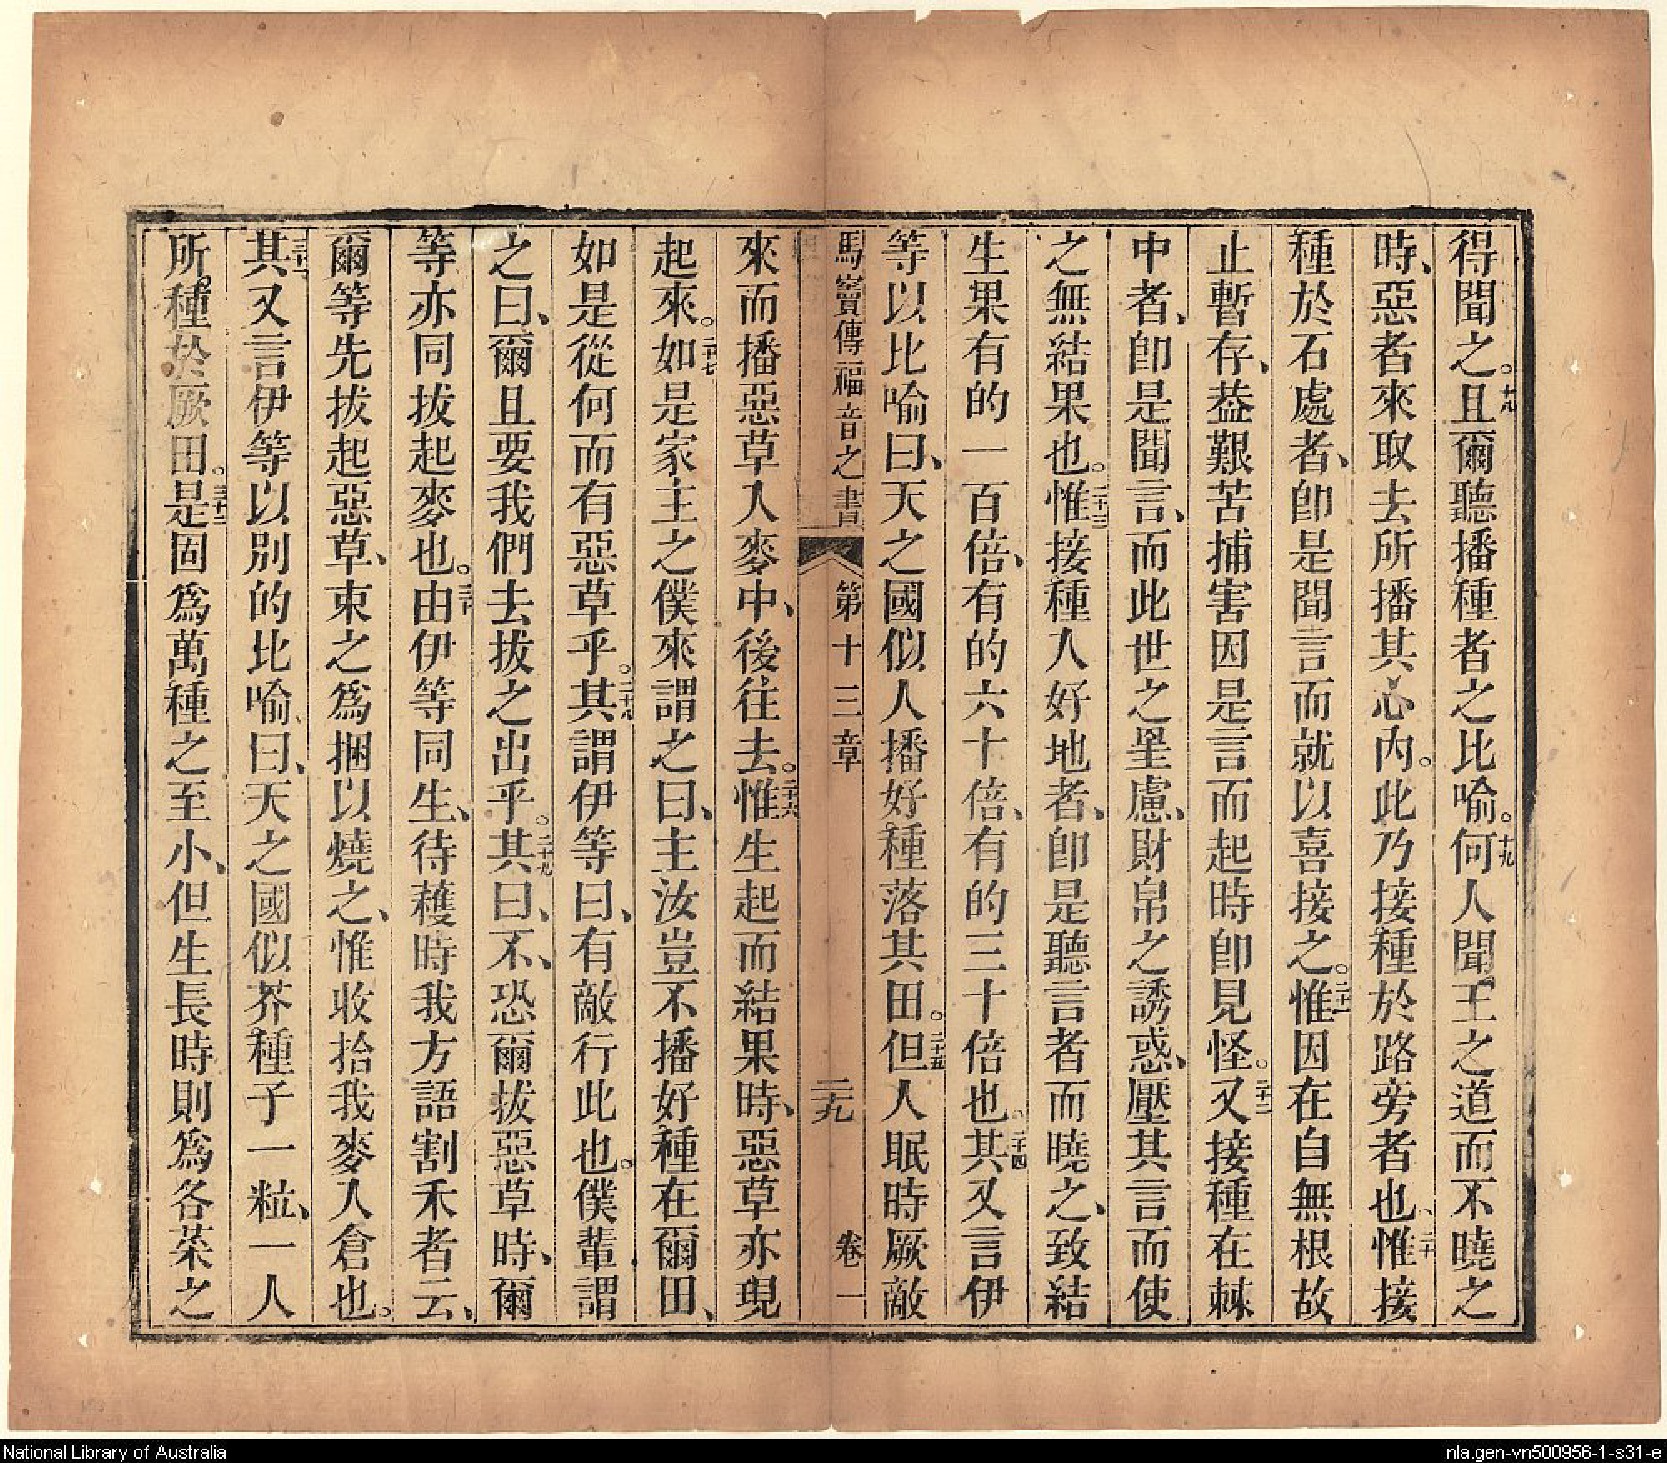 得聞之。十八且爾聽播種者之比喻。十九何人聞王之道而不曉之
時、惡者來取去所播其心內。此乃接種於路旁者也、二十惟接
種於石處者、卽是聞言而就以喜接之。二十一惟因在自無根故
止暫存、葢艱苦捕害因是言而起時卽見怪。二十二又接種在棘
中者、卽是聞言、而此世之星慮、財帛之誘惑、壓其言而使
之無結果也。二十三惟接種人好地者、卽是聽言者而曉之、致結
生果有的一百倍、有的六十倍、有的三十倍也。二十四其又言伊
等以比喻曰、天之國似人播好種落其田。二十五但人眠時厥敵
馬竇傳福音之書 第十三章 二十九 卷一
來而播惡草人麥中、後往去。二十六惟生起而結果時、惡草亦現
起來。二十七如是家主之僕來謂之曰、主汝豈不播好種在爾田、
如是從何而有惡草乎。二十八其謂伊等曰、有敵行此也。僕輩謂
之曰、爾且要我們去拔之出乎。二十九其曰、不、恐爾拔惡草時、爾
等亦同拔起麥也。三十由伊等同生、待穫時我方語割禾者云、
爾等先拔起惡草、束之爲捆以燒之、惟收拾我麥入倉也。
三十一其又言伊等以別的比喻、曰、天之國似芥種子一粒、一人
所種於厥田。三十二是固爲萬種之至小、但生長時則爲各菜之
National Library of Australia
nla.gen-vn500956-1-s31-e